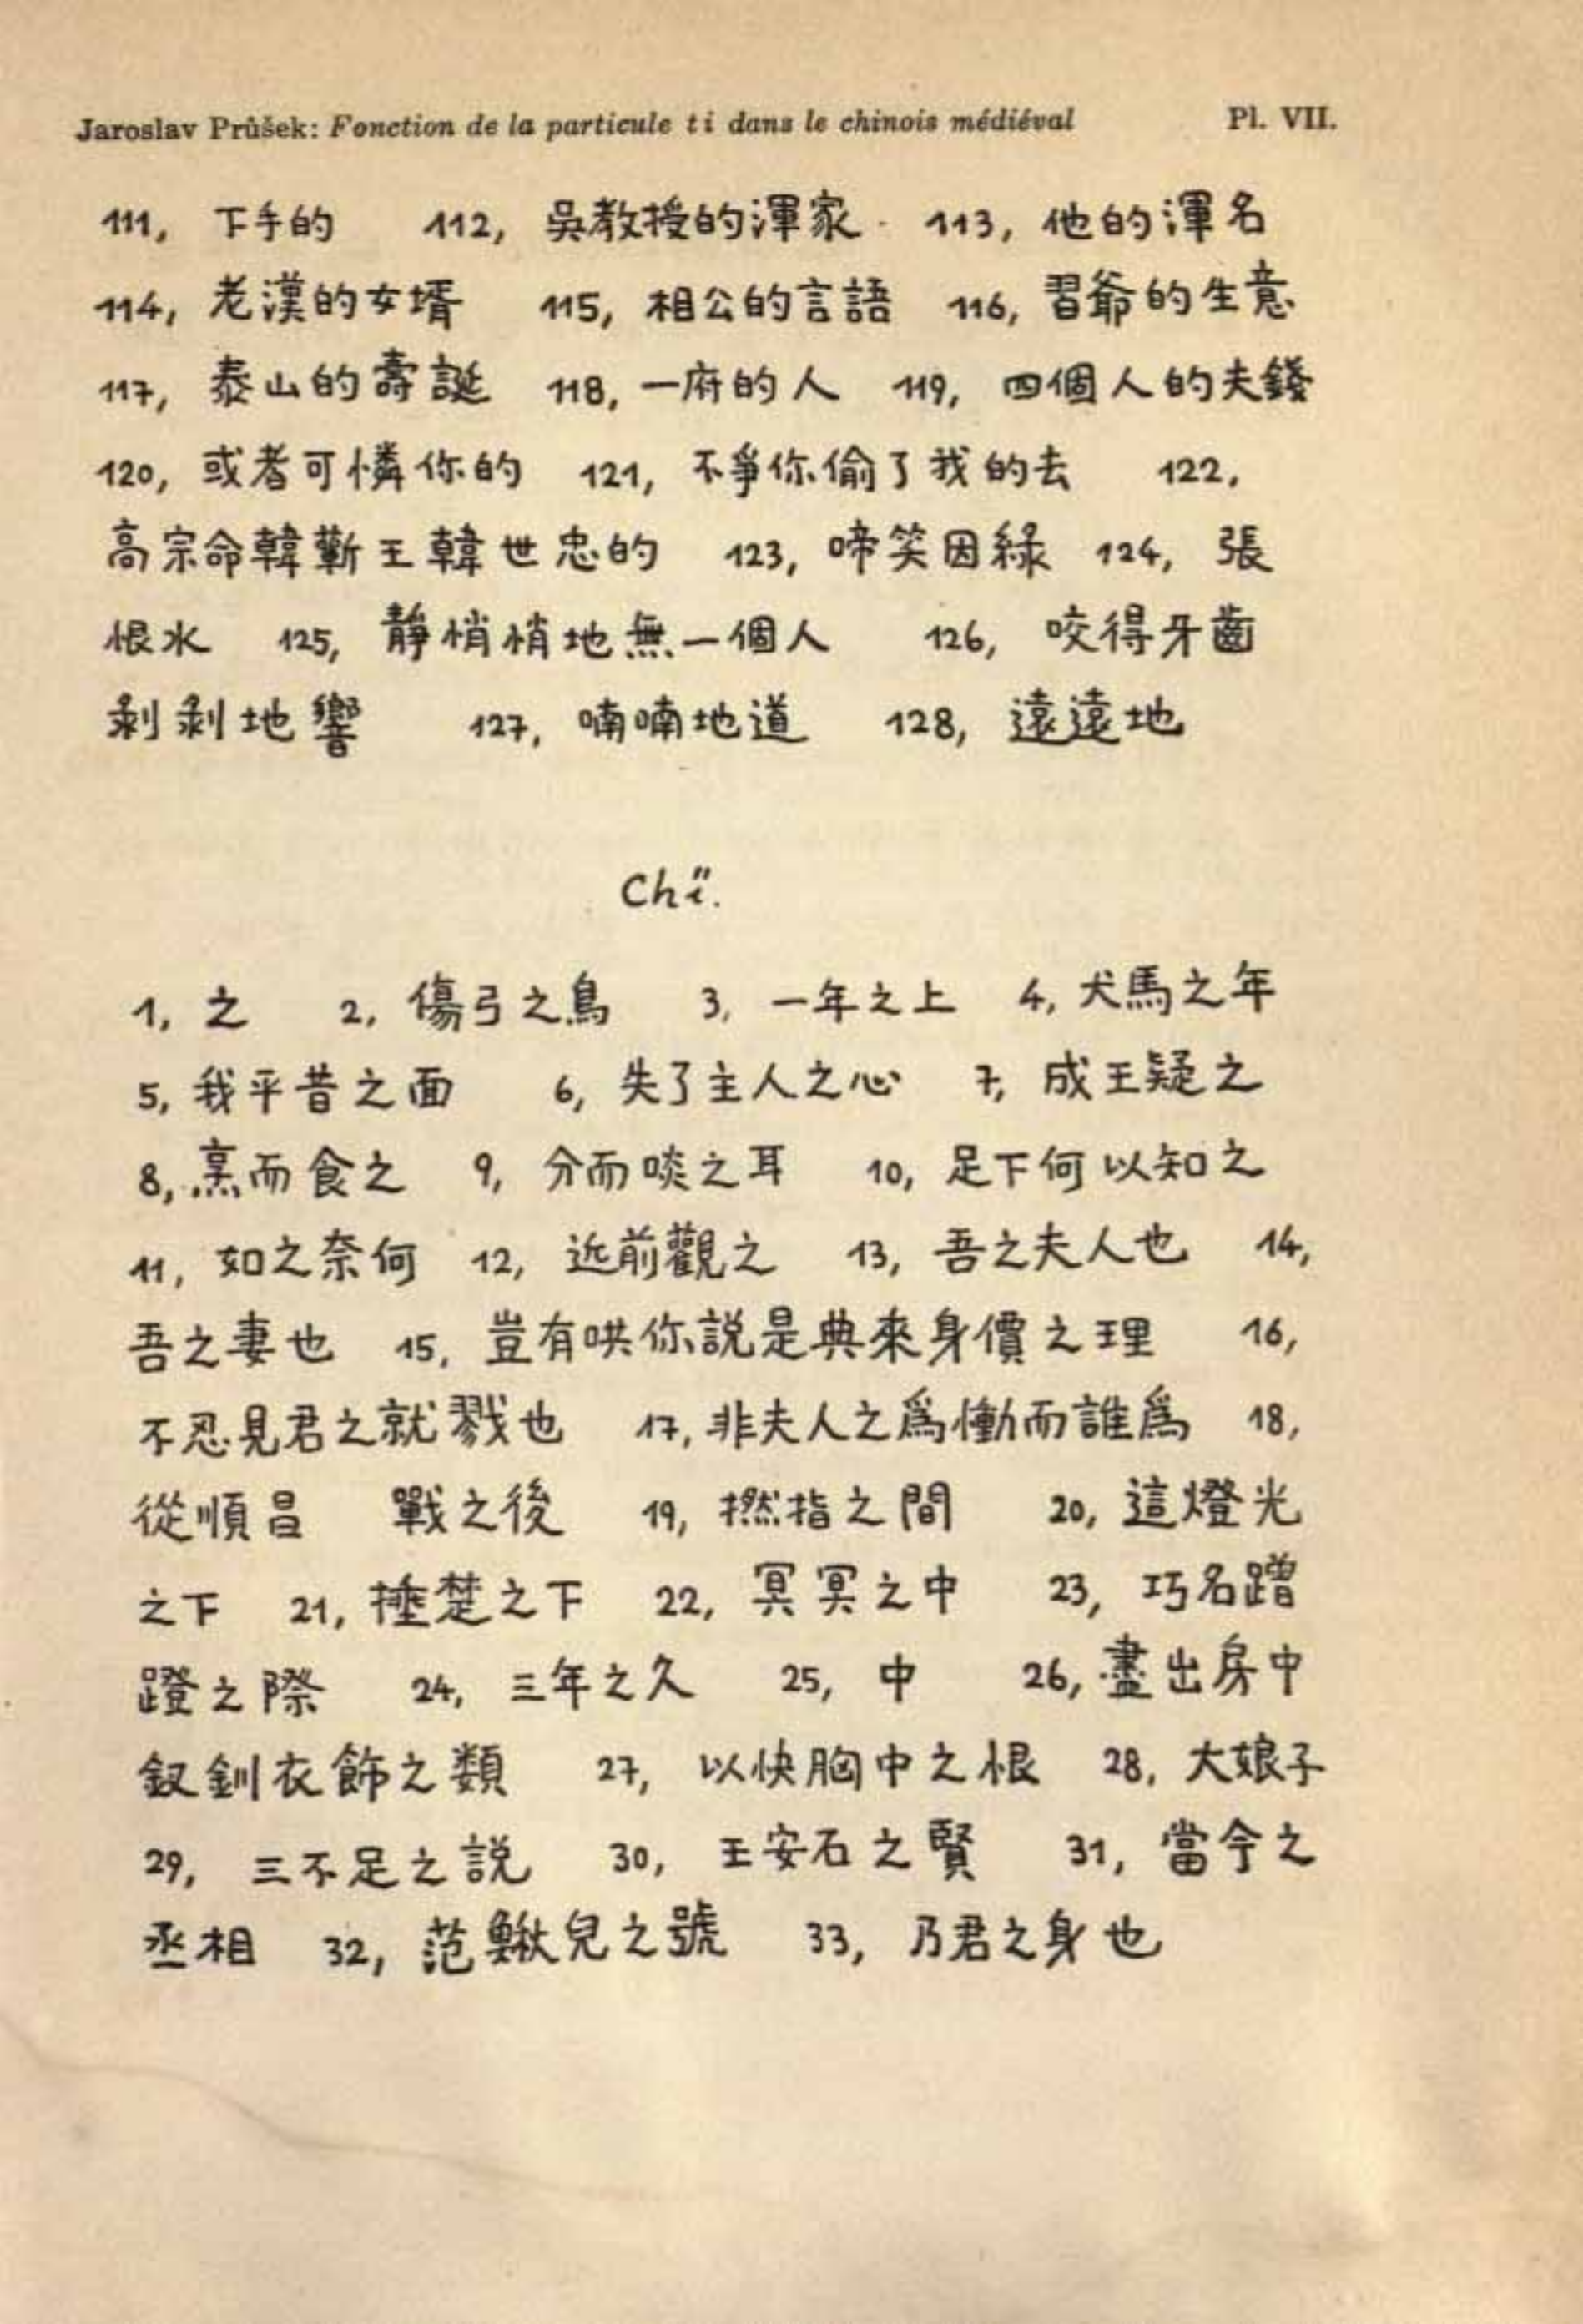 Jaroslav Průšek: Fonction de la particule ti dans le chinois médiéval Pl. VII.
111, 下手的 112, 吳教授的渾家 113, 他的渾名
114, 老漢的女壻 115, 相公的言語 116, 習爺的生意
117, 泰山的壽誕 118, 一府的人 119, 四個人的夫錢
120, 或者可憐你的 121, 不爭你偷了我的去 122,
高宗命韓蘄王韓世忠的 123, 啼笑因緣 124, 張
恨水 125, 靜悄悄地無一個人 126, 咬得牙齒
剥剥地響 127, 喃喃地道 128, 遠遠地
Chï.
1, 之 2, 傷弓之鳥 3, 一年之上 4, 犬馬之年
5, 我平昔之面 6, 失了主人之心 7, 成王疑之
8, 烹而食之 9, 分而啖之耳 10, 足下何以知之
11, 如之奈何 12, 近前觀之 13, 吾之夫人也 14,
吾之妻也 15, 豈有哄你說是典來身價之理 16,
不忍見君之就戮也 17, 非夫人之爲慟而誰爲 18,
從順昌 戰之後 19, 撚指之間 20, 這燈光
之下 21, 捶楚之下 22, 冥冥之中 23, 巧名蹭
蹬之際 24, 三年之久 25, 中 26, 盡出房中
釵釧衣飾之類 27, 以快胸中之恨 28, 大娘子
29, 三不足之說 30, 王安石之賢 31, 當今之
丞相 32, 范鰍兒之號 33, 乃君之身也